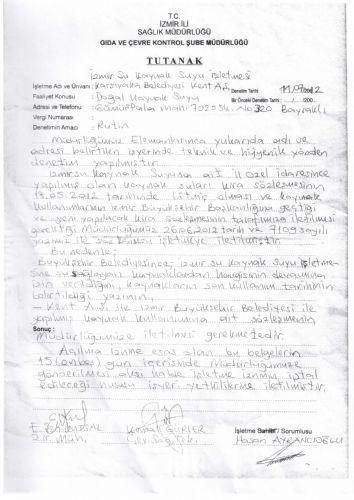 T.C.
İZMİR İLİ
SAĞLIK MÜDÜRLÜĞÜ
GIDA VE ÇEVRE KONTROL ŞUBE MÜDÜRLÜĞÜ
TUTANAK
İzmir Su Kaynak Suyu İşletmesi
İşletme Adı ve Ünvanı : Karşıyaka Belediyesi Kent A.Ş. Denetim Tarihi 11.07.2012
Faaliyet Konusu : Doğal Kaynak Suyu Bir Önceki Denetim Tarihi : / /200..
Adresi ve Telefonu : Gümüşpala Mah. 7020 Sk. No 320 Bayraklı
Vergi Numarası :
Denetimin Amacı : Rutin
Müdürlüğümüz Elemanlarınca yukarıda adı ve
adresi belirtilen işyerinde teknik ve hijyenik yönden
denetim yapılmıştır.
İzmirsu Kaynak Suyuna ait İl Özel İdaresince
yapılmış olan kaynak suları kira sözleşmesinin
13.05.2012 tarihinde bitmiş olması ve kaynak
kullanımlarının İzmir Büyükşehir Başkanlığına geçtiği
ve yeni yapılacak kira sözleşmesinin tarafımıza iletilmesi
gerektiği Müdürlüğümüz 26.06.2012 tarih ve 7109 sayılı
yazımız ile işletmeye iletilmiştir.
Bu nedenle;
Büyükşehir Belediyesince, İzmir su kaynak suyu işletme-
sine su sağlayan kaynaklardan hangisinin devamına
izin verildiğini, kaynakların son kullanım tarihinin
belirtildiği yazının,
- Kent A.Ş. ile İzmir Büyükşehir Belediyesi ile
yapılmış kaynak kullanımına ait sözleşmenin
Sonuç :
Müdürlüğümüze iletilmesi gerekmektedir.
Açılma iznine esas olan bu belgelerin
15 (onbeş) gün içerisinde Müdürlüğümüze
gönderilmesi aksi halde işletme izninin iptal
edileceği hususu işyeri yetkililerine iletilmiştir.
Kemali GÜRLER
Çev. Sağ. Tek.
İşletme Sahibi / Sorumlusu
Hasan AYRANCIOĞLU